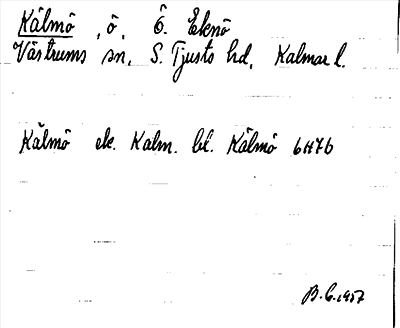 Kålmö, ö, Ö. Eknö
Västrums sn, S. Tjusts hd, Kalmar l.
Kålmö ek. Kalm. bl. Kålmö 6H7b
B.G. 1957